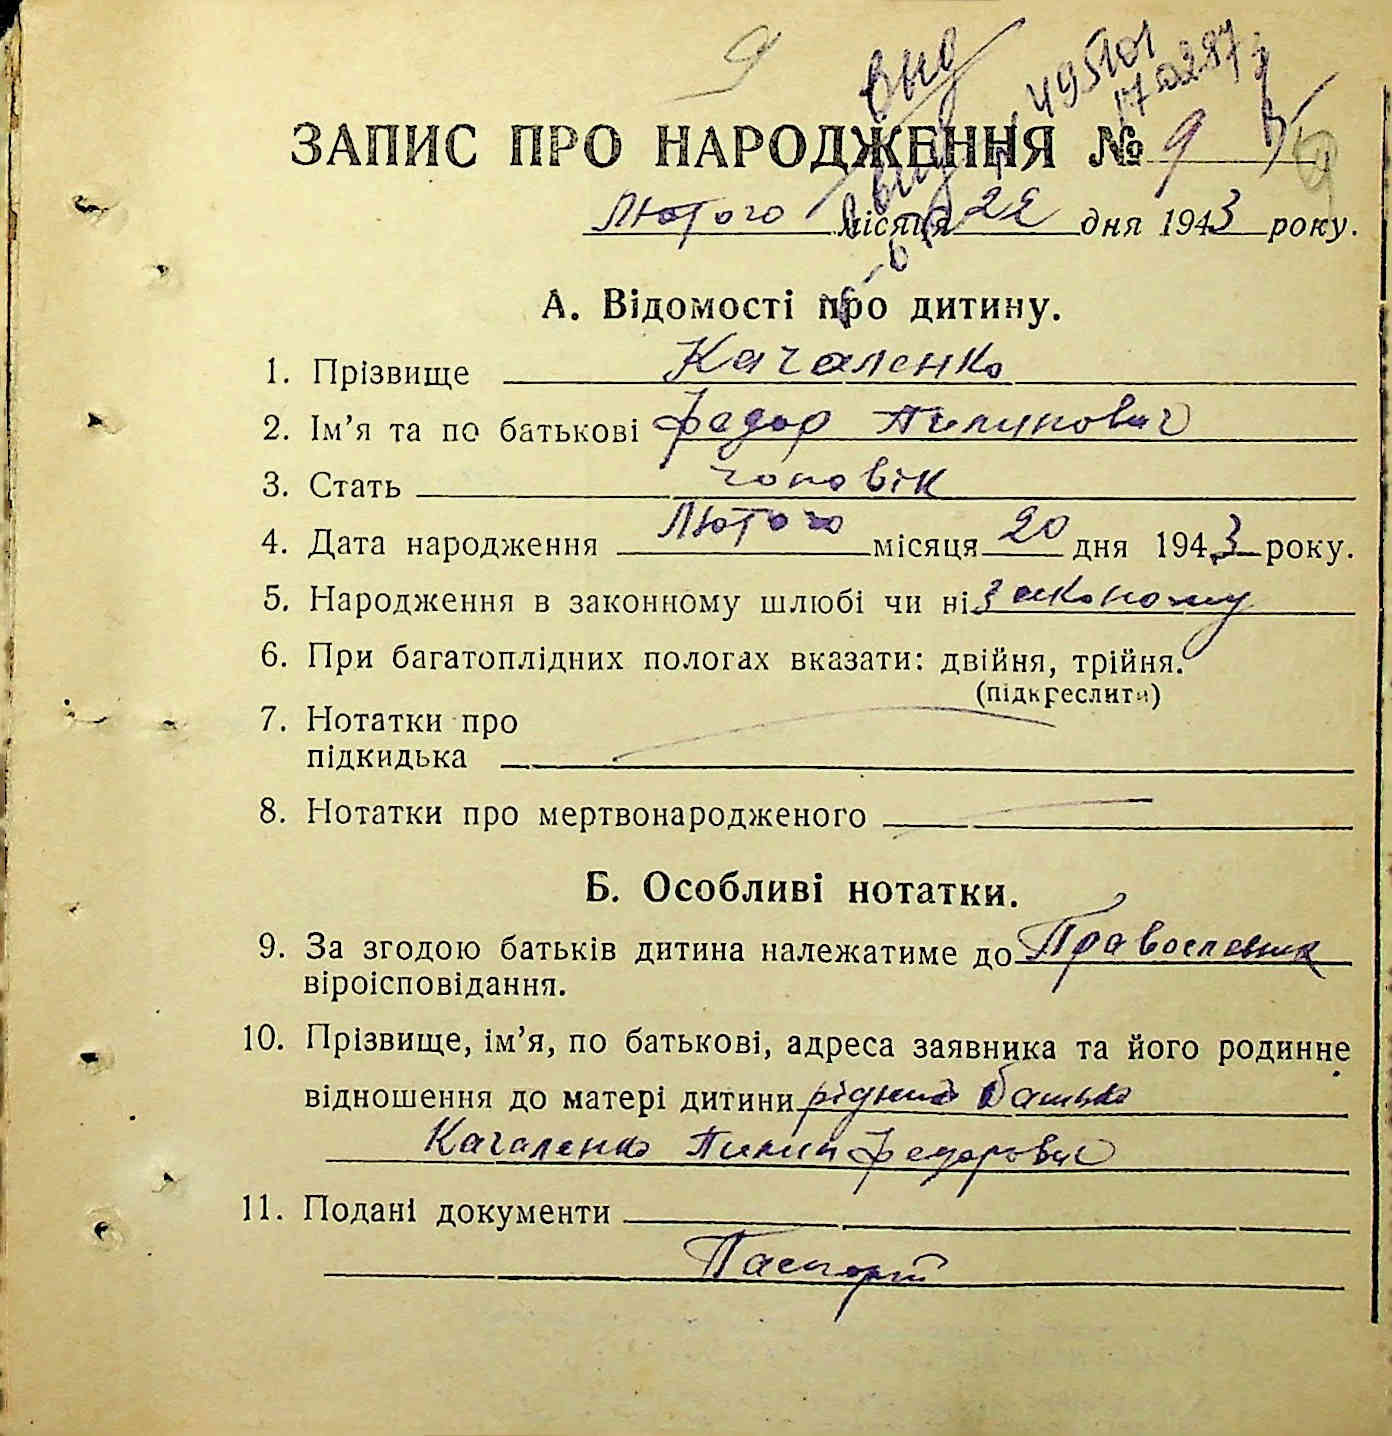 9
ЗАПИС ПРО НАРОДЖЕННЯ № 9
Лютого місяця 22 дня 1943 року.
А. Відомості про дитину.
1. Прізвище Качаленко
2. Ім’я та по батькові Федор Пилипович
3. Стать чоловік
4. Дата народження Лютого місяця 20 дня 1943 року.
5. Народження в законному шлюбі чи ні законому
6. При багатоплідних пологах вказати: двійня, трійня.
(підкреслити)
7. Нотатки про
підкидька
8. Нотатки про мертвонародженого
Б. Особливі нотатки.
9. За згодою батьків дитина належатиме до
віроісповідання.
10. Прізвище, ім’я, по батькові, адреса заявника та його родинне
відношення до матері дитини рідний батько
Качаленко Пилип Федорович
11. Подані документи
Паспорт